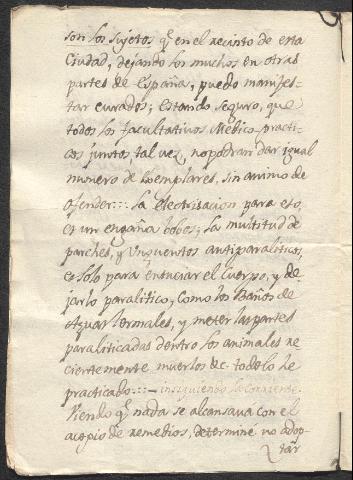 son los sujetos q.e en el recinto de esta
Ciudad, dejando los muchos en otras
partes de España, puedo manifes-
tar curados; estando seguro, que
todos los facultativos Medico-practi-
cos juntos tal vez, no podran dar igual
numero de Exemplares, sin animo de
ofender::: La electrisacion para esto,
es un engaña bobos; la multitud de
parches, y Unguentos antiparaliticos,
es solo para ensuciar el Cuerpo, y de-
jarlo paralitico; como los Baños de
Aguas termales, y meter las partes
paraliticadas dentro los animales re
cientemente muertos &c. todo lo he
practicado::: insiguiendo la corriente.
Viendo q.e nada se alcansava con el
acopio de remedios, determiné no adop-
tar